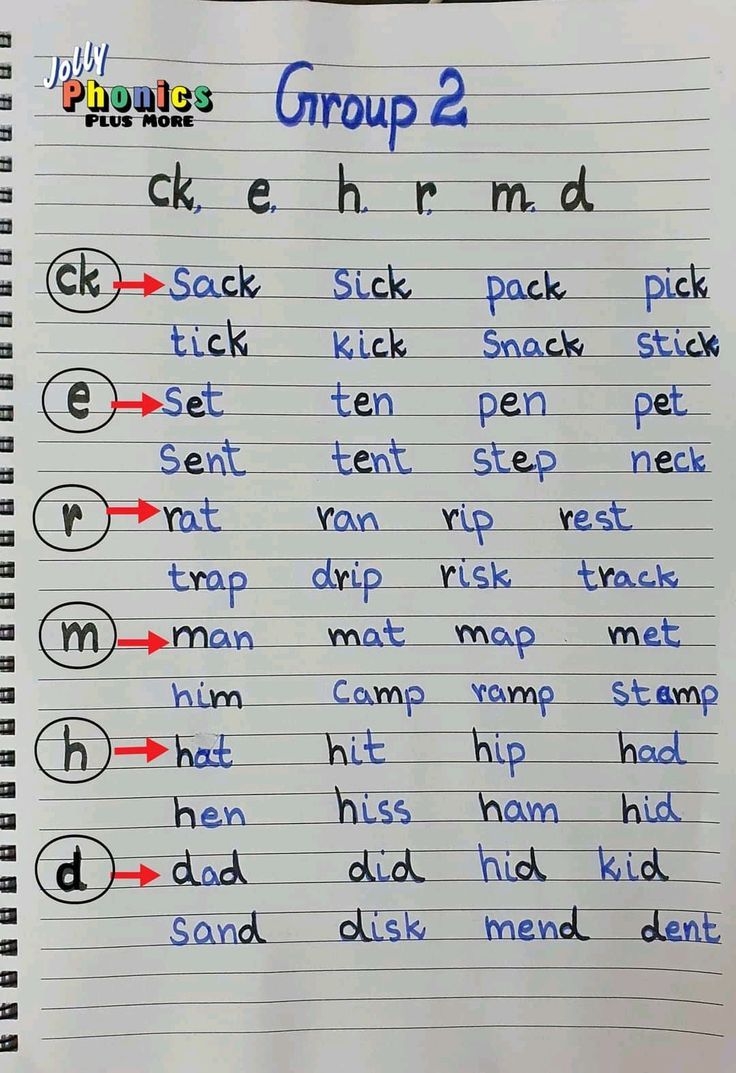 Jolly
Phonics
PLUS MORE
Group 2
ck, e, h, r, m, d
ck → sack sick pack pick
tick kick snack stick
e → set ten pen pet
sent tent step neck
r → rat ran rip rest
trap drip risk track
m → man mat map met
him camp ramp stamp
h → hat hit hip had
hen hiss ham hid
d → dad did hid kid
sand disk mend dent